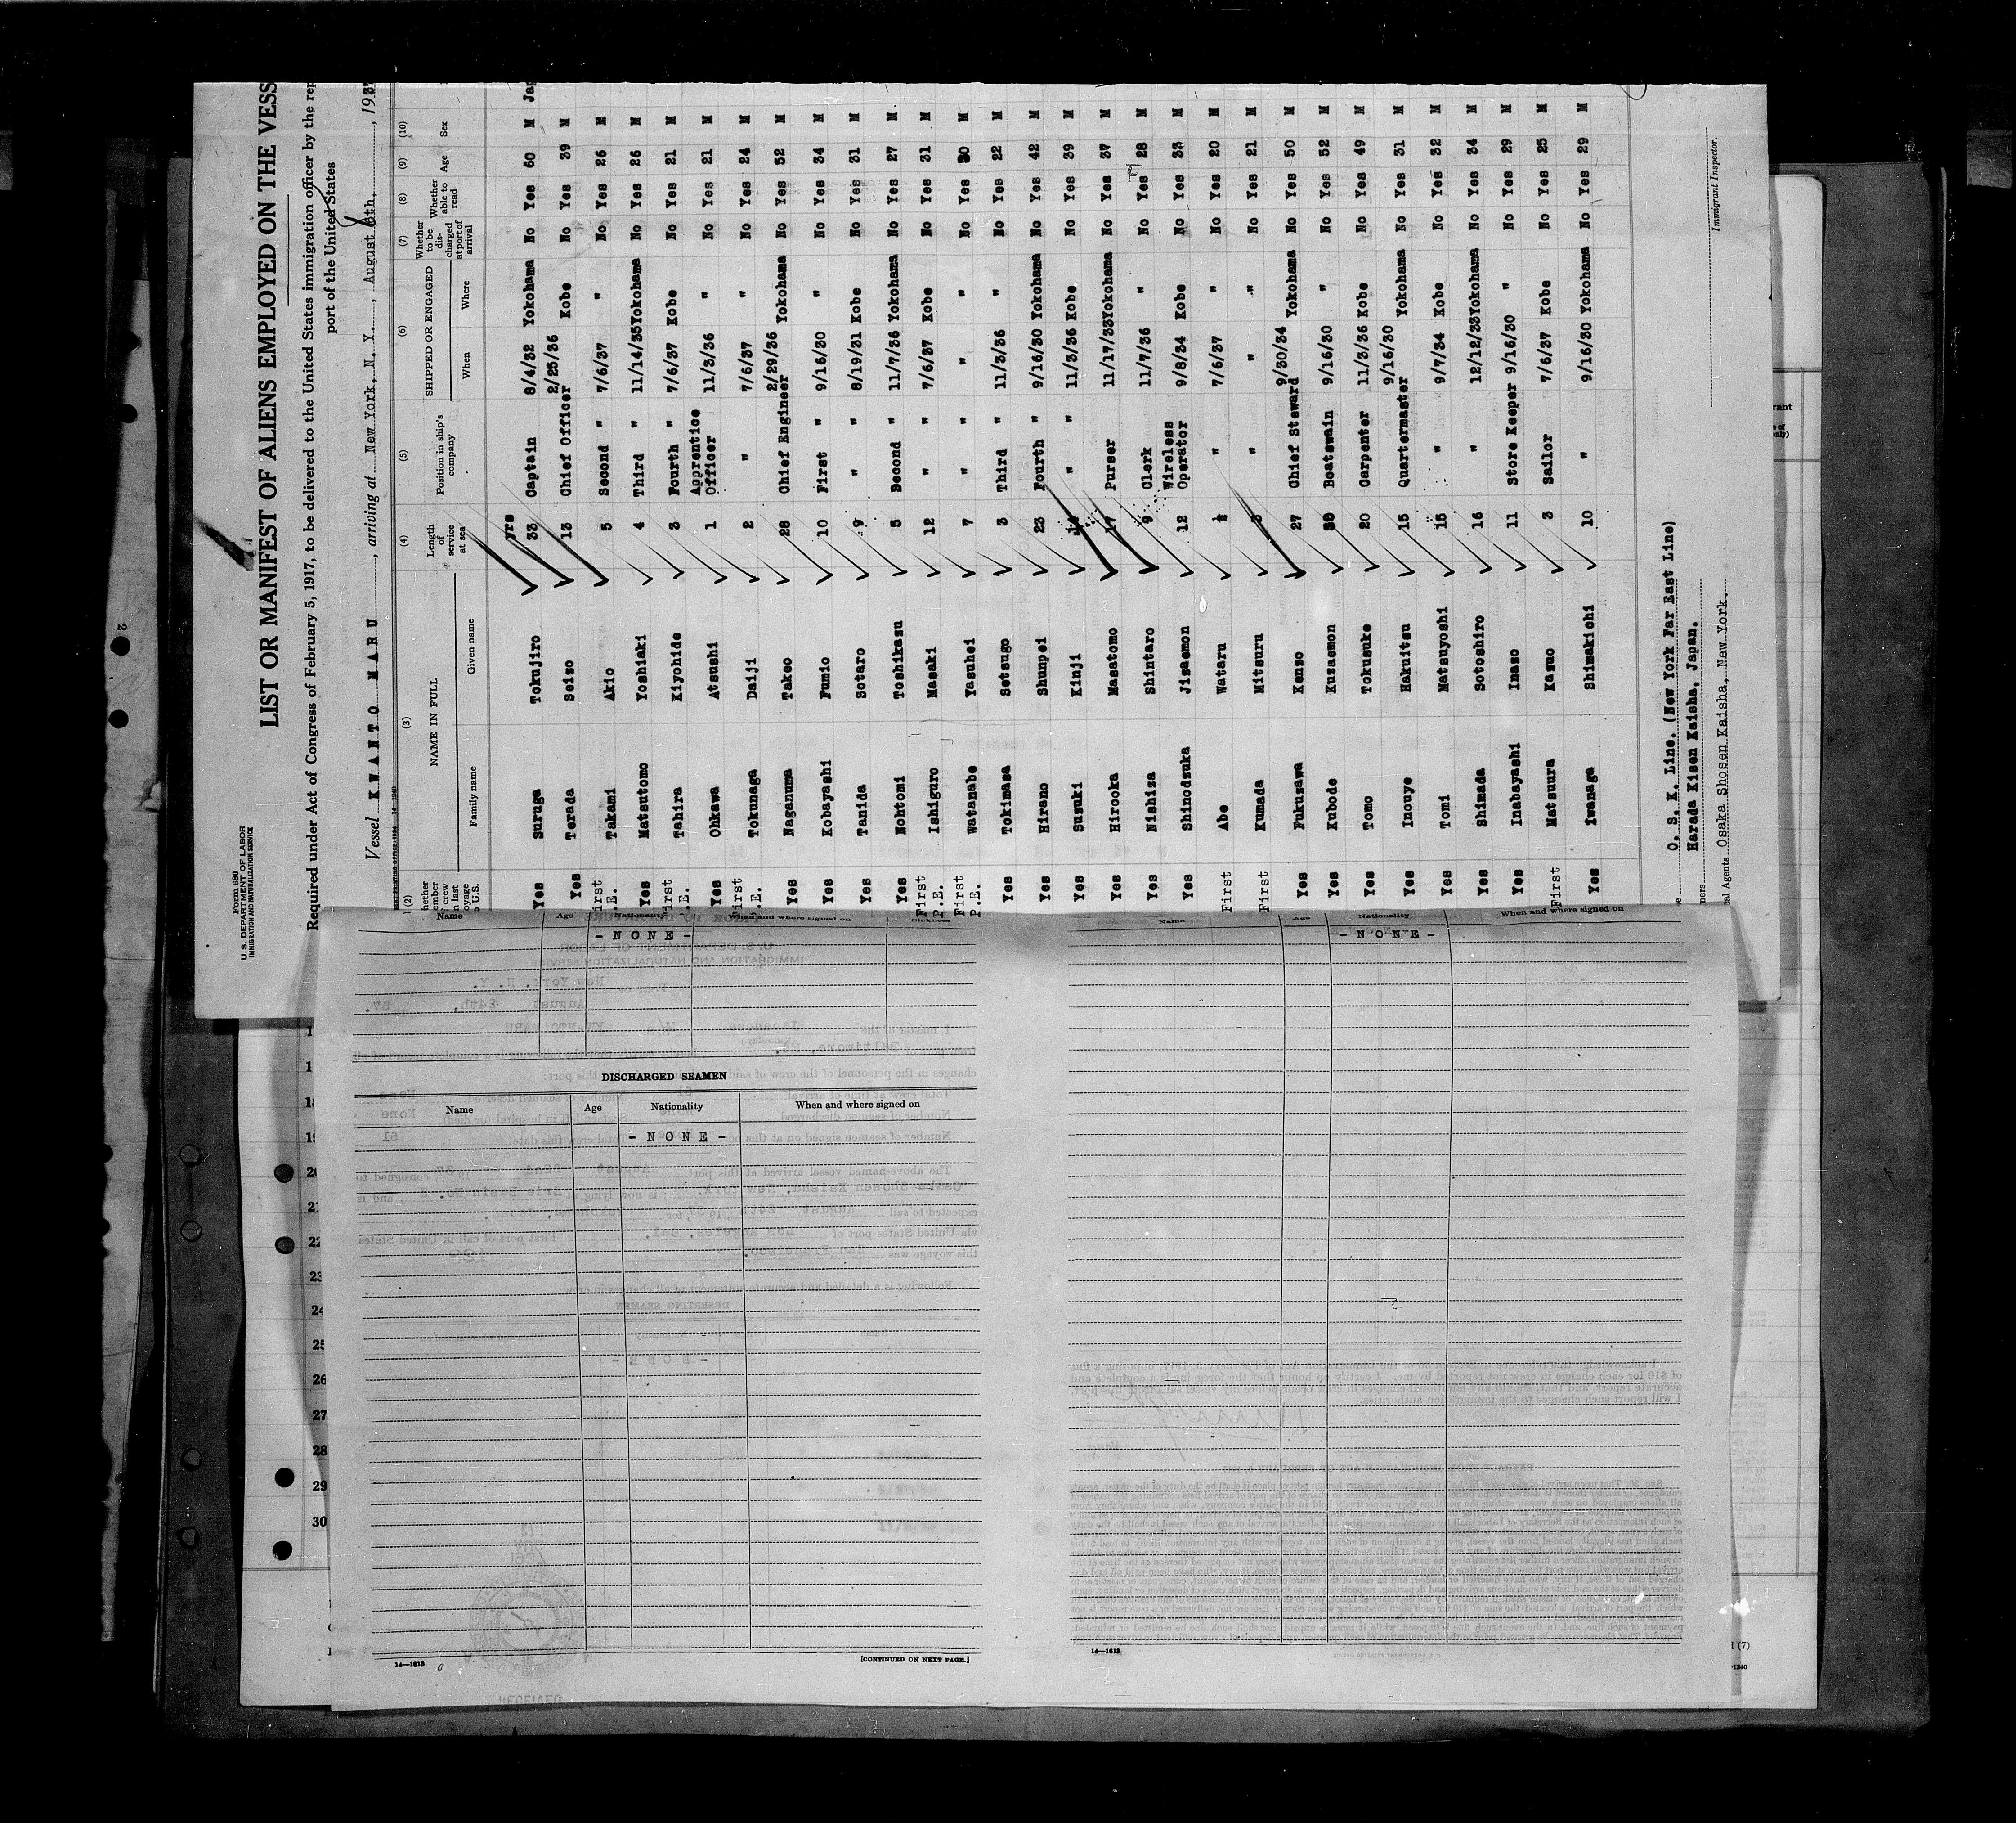 Form 680
U. S. DEPARTMENT OF LABOR
IMMIGRATION AND NATURALIZATION SERVICE
LIST OR MANIFEST OF ALIENS EMPLOYED ON THE VESS
Required under Act of Congress of February 5, 1917, to be delivered to the United States immigration officer by the rep
port of the United States
Vessel KWANTO MARU, arriving at New York, N. Y., August 6th, 1937
(2) (3) (4) (5) (6) (7) (8) (9) (10)
NAME IN FULL
Family name Given name
Length of service at sea
Position in ship's company
SHIPPED OR ENGAGED
When Where
Whether to be discharged at port of arrival
Whether able to read
Age
Sex
yrs
Yes Suruga Tokujiro 33 Captain 8/4/32 Yokohama No Yes 60 M Jap
Yes Terada Seizo 13 Chief Officer 2/25/36 Kobe No Yes 39 M
First P.E. Takami Akio 5 Second " 7/6/37 " No Yes 26 M
Yes Matsutomo Yoshiaki 4 Third " 11/14/35 Yokohama No Yes 26 M
First P.E. Tahira Kiyohide 3 Fourth " 7/6/37 Kobe No Yes 21 M
Yes Ohkawa Atsushi 1 Apprentice Officer 11/3/36 " No Yes 21 M
First P.E. Tokunaga Daiji 2 " 7/6/37 " No Yes 24 M
Yes Naganuma Takeo 28 Chief Engineer 2/29/36 Yokohama No Yes 52 M
Yes Kobayashi Fumio 10 First " 9/16/30 " No Yes 34 M
Yes Tanida Sotaro 9 " " 8/19/31 Kobe No Yes 31 M
Yes Nohtomi Toshikasu 5 Second " 11/7/36 Yokohama No Yes 27 M
First P.E. Ishiguro Masaki 12 " " 7/6/37 Kobe No Yes 31 M
First P.E. Watanabe Yasuhei 7 " " " " No Yes 30 M
Yes Tokimasa Setsugo 3 Third " 11/3/36 " No Yes 22 M
Yes Hirano Shunpei 23 Fourth " 9/16/30 Yokohama No Yes 42 M
Yes Suzuki Kinji " " 11/3/36 Kobe No Yes 39 M
Yes Hirooka Masatomo 17 Purser 11/17/33 Yokohama No Yes 37 M
Yes Nishiza Shintaro 9 Clerk 11/7/36 " No Yes 28 M
Yes Shinodzuka Jisaemon 12 Wireless Operator 9/8/34 Kobe No Yes 33 M
First Abe Wataru " 7/6/37 " No Yes 20 M
First Kumada Mitsuru " " " No Yes 21 M
Yes Fukuzawa Kenzo 27 Chief Steward 9/30/34 Yokohama No Yes 50 M
Yes Kubode Kusaemon Boatswain 9/16/30 " No Yes 52 M
Yes Tomo Tokusuke 20 Carpenter 11/3/36 Kobe No Yes 49 M
Yes Inouye Hakuitsu 15 Quartermaster 9/16/30 Yokohama No Yes 31 M
Yes Tomi Matsuyoshi 15 " 9/7/34 Kobe No Yes 32 M
Yes Shimada Sotoshiro 16 " 12/12/33 Yokohama No Yes 34 M
Yes Inabayashi Inazo 11 Store Keeper 9/16/30 " No Yes 29 M
First Matsura Kazuo 3 Sailor 7/6/37 Kobe No Yes 25 M
Yes Iwanaga Shimakichi 10 " 9/16/30 Yokohama No Yes 29 M
O. S. K. Line. (New York Far East Line)
Harada Kisen Kaisha, Japan.
Osaka Shosen Kaisha, New York.
Immigrant Inspector.
Name Age Nationality When and where signed on
-NONE-
DISCHARGED SEAMEN
Name Age Nationality When and where signed on
-NONE-
14—1613
[CONTINUED ON NEXT PAGE.]
Name Age Nationality When and where signed on
-NONE-
14—1613
20
21
22
23
24
25
26
27
28
29
30